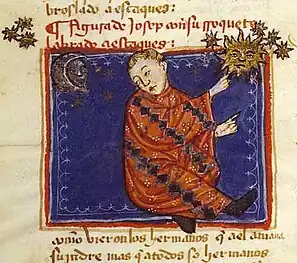 broslado a estaques :
¶ ffigura de Josep con su rroquete
labrado a estaques :
como vieron los hermanos q̃ el
su padre mas q̃ a todos sꝰ hermanos